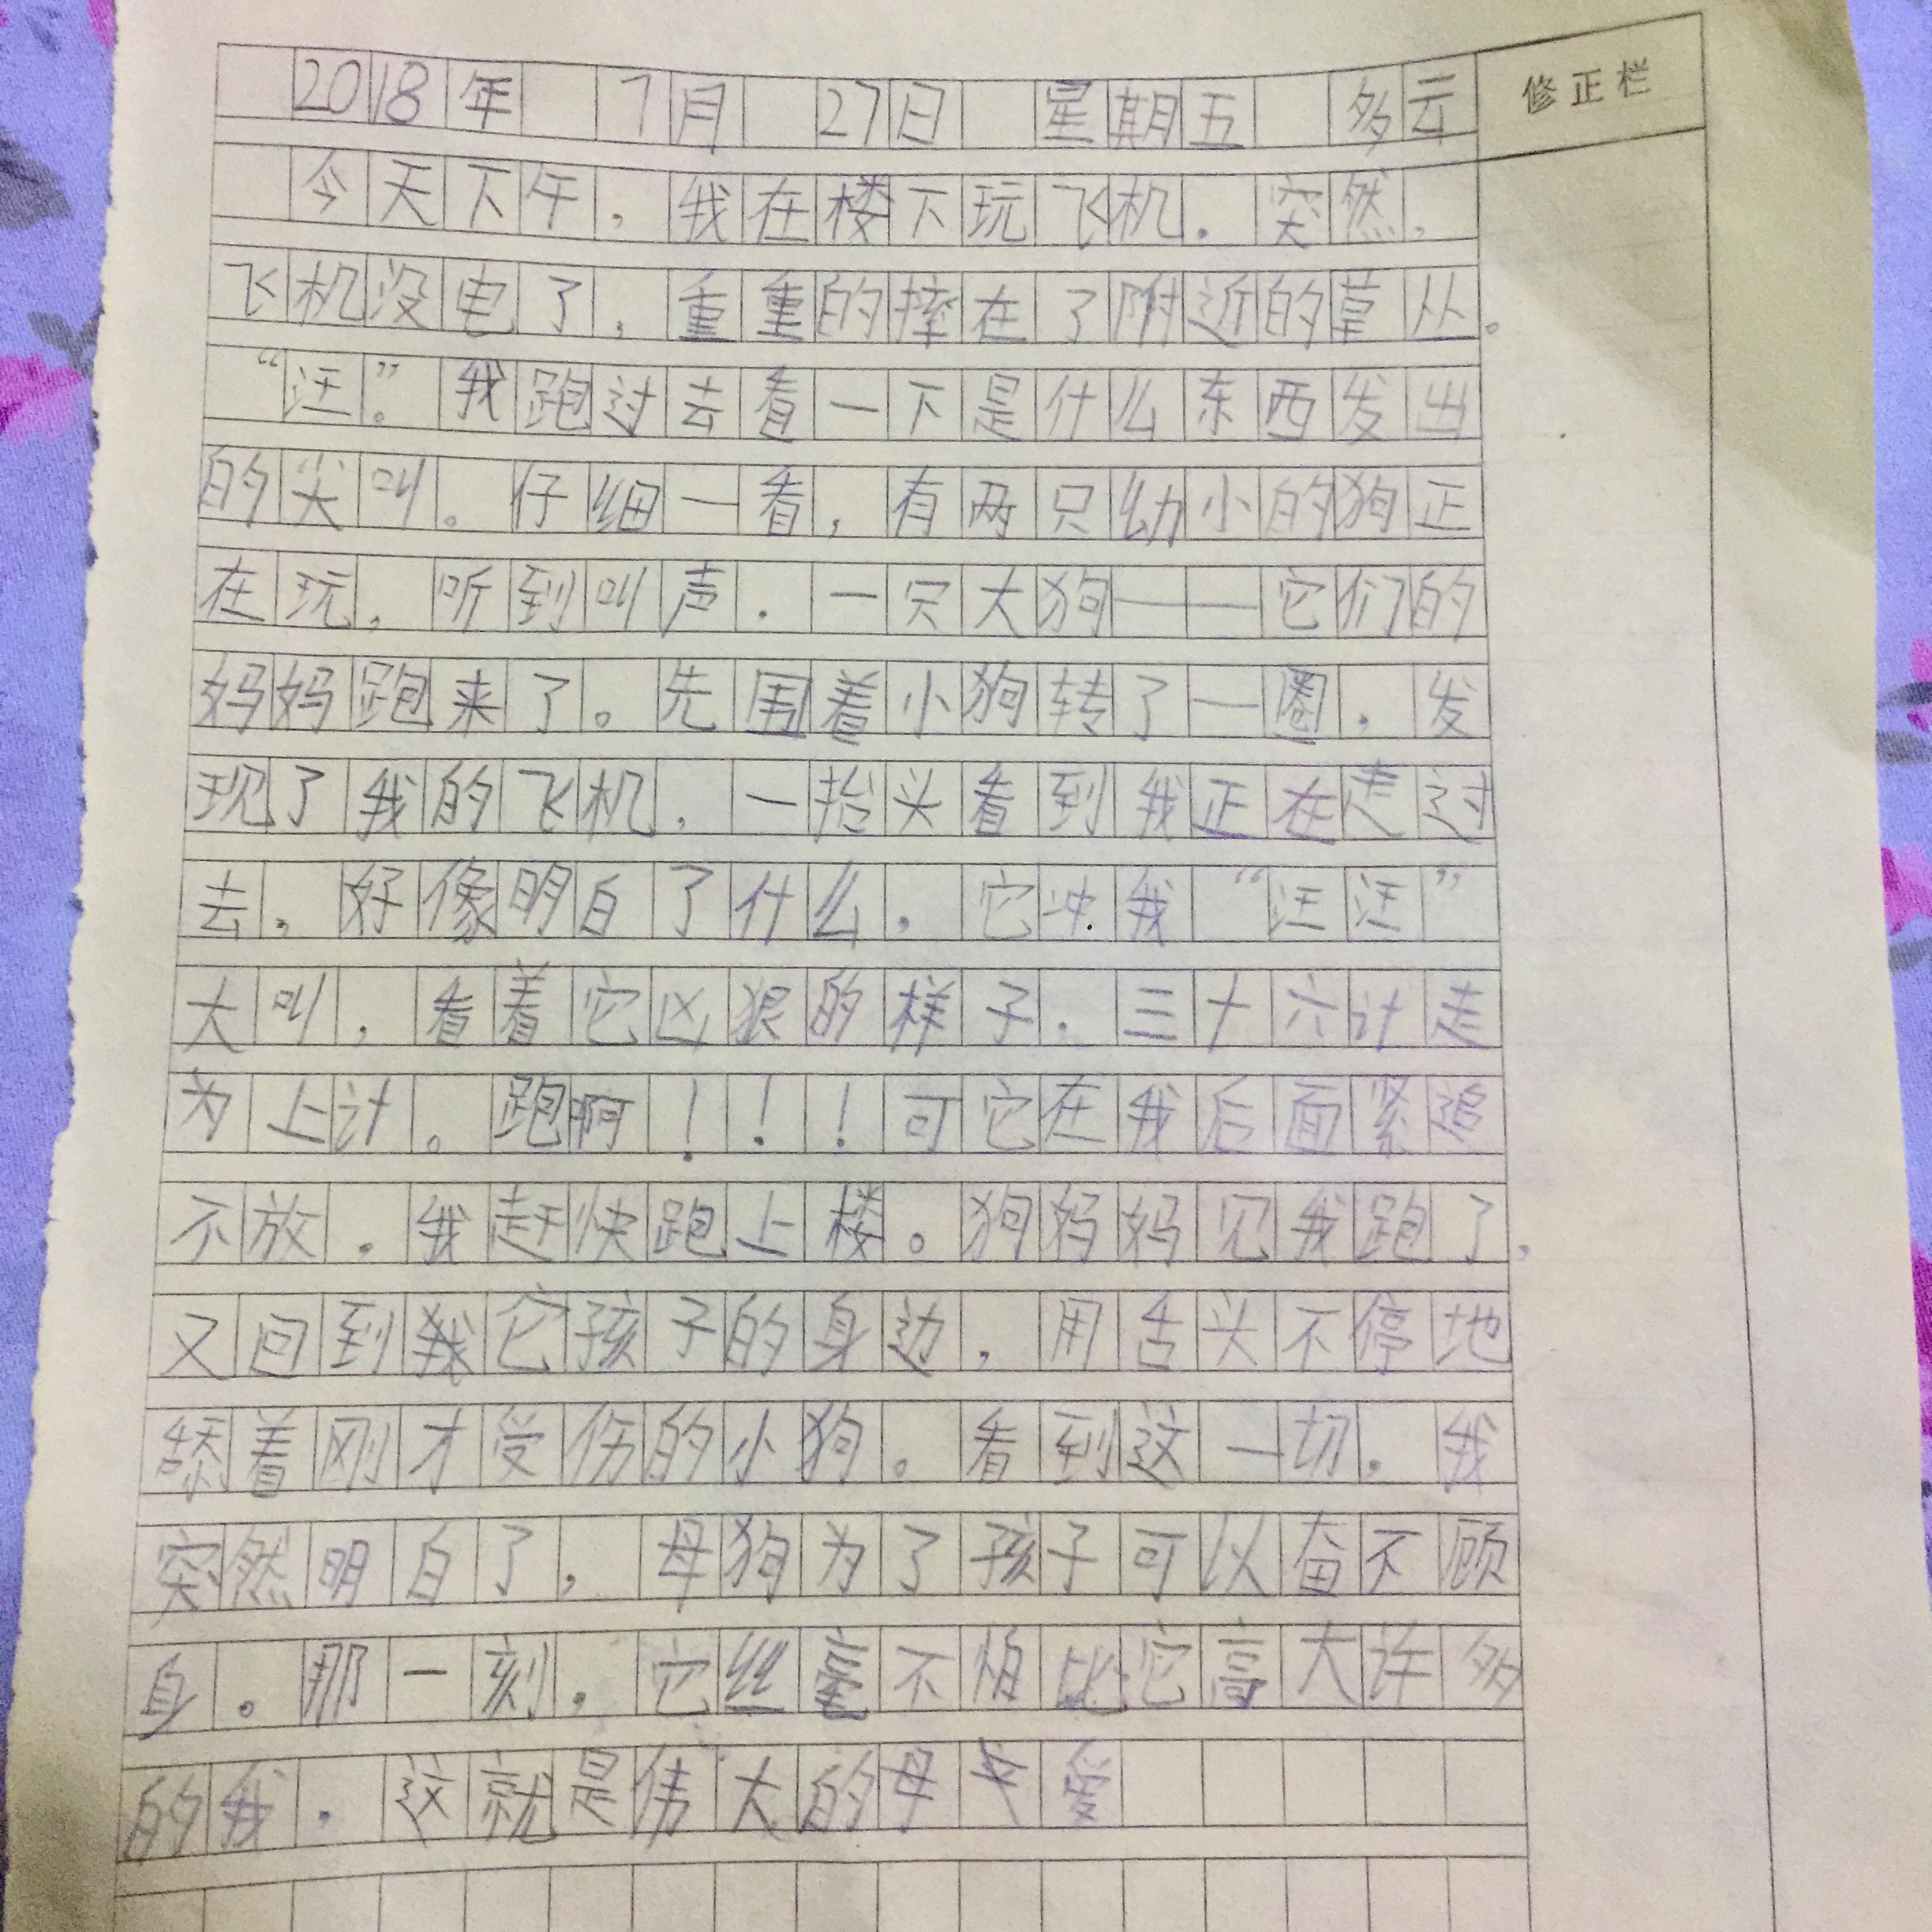 2018年 7月 27日 星期五 多云
修正栏
今天下午，我在楼下玩飞机．突然，
飞机没电了，重重的摔在了附近的草丛。
“汪”。我跑过去看一下是什么东西发出
的尖叫。仔细一看，有两只幼小的狗正
在玩，听到叫声．一只大狗——它们的
妈妈跑来了。先围着小狗转了一圈．发
现了我的飞机，一抬头看到我正在走过
去，好像明白了什么，它冲我“汪汪”
大叫，看着它凶狠的样子．三十六计走
为上计。跑啊！！！可它在我后面紧追
不放．我赶快跑上楼。狗妈妈见我跑了，
又回到它孩子的身边，用舌头不停地
舔着刚才受伤的小狗。看到这一切．我
突然明白了，母狗为了孩子可以奋不顾
身。那一刻．它丝毫不怕比它高大许多
的我．这就是伟大的母爱